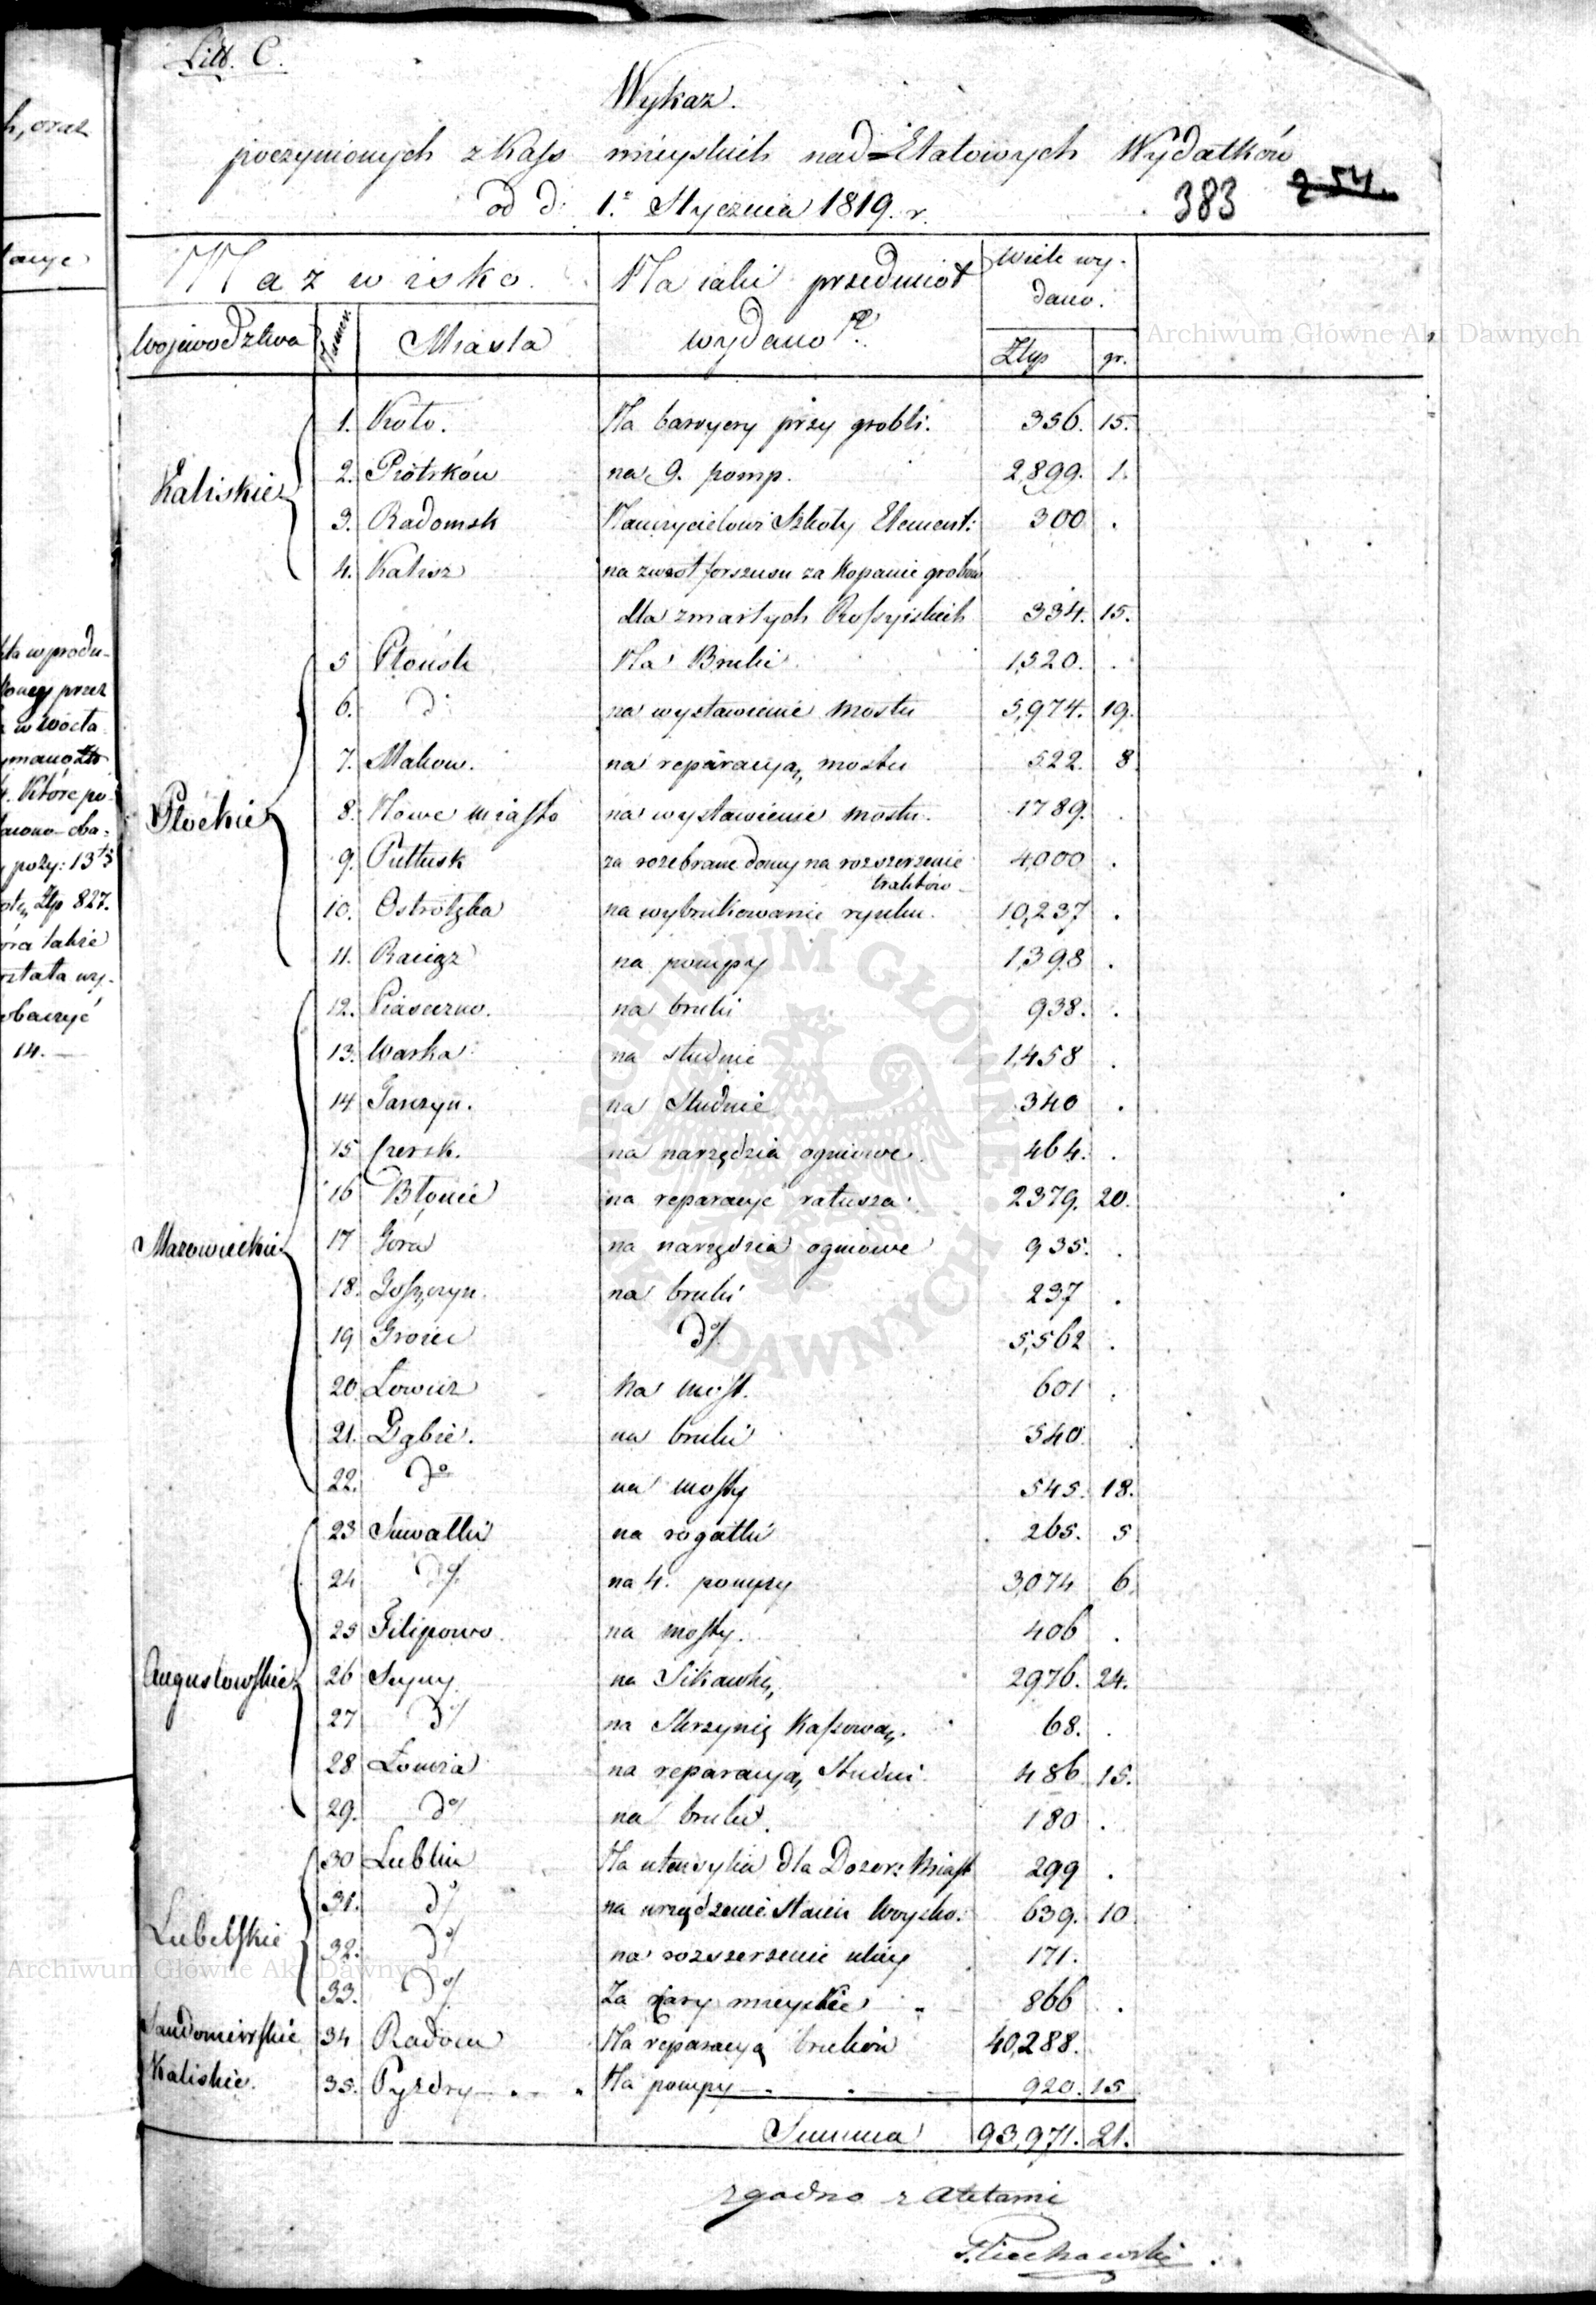 Litt. C.
Wykaz.
poczynionych z Kass mieyskich nad=Etatowych Wydatków
od d: 1.º Stycznia 1819. r.
383 254.
Nazwisko.
Na iaki przedmiot wydano?
Wiele wydano.
Województwa
Numer
Miasta
Złp
gr.
Kaliskie
1. Koło. Na baryery przy grobli. 356. 15.
2. Piotrków na 9. pomp. 2,899. 1.
3. Radomsk Nauczycielowi Szkoły Element: 300 .
4. Kalisz na zwrot forszusu za kopanie grobów
dla zmarłych Rossyiskich 334. 15.
Płockie
5 Płońsk Na Bruki 1,520. .
6. dº na wystawienie mostu 5,974. 19.
7. Maków. na reparacyą mostu 522. 8
8. Nowe miasto na wystawienie mostu. 1789. .
9. Pułtusk za rozebrane domy na rozszerzenie traktów 4,000 .
10. Ostrołęka na wybrukowanie rynku. 10,237 .
11. Raciąż na pompy 1,398 .
Mazowieckie
12. Piaseczno. na bruki 938. .
13. Warka na studnie 1,458 .
14 Tarczyn. na Studnie 340 .
15 Czersk. na narzędzia ogniowe. 464. .
16 Błonie na reparacye ratusza 2379. 20.
17 Góra na narzędzia ogniowe 935. .
18. Goszczyn. na bruki 237 .
19 Groiec dº 5,562 .
20 Łowicz Na most. 601 .
21. Dąbie. na bruki 540 .
22. dº na mosty 545. 18.
Augustowskie
23 Suwałki na rogatki 265. 5
24 dº na 4. pompy 3,074 6.
25 Filipowo. na mosty. 406 .
26 Seyny na Sikawkę 2976. 24.
27 dº na Skrzynię Kassową. 68. .
28 Łomża na reparacyą Studni 486 15.
29. dº na bruki. 180 .
Lubelskie
30 Lublin Na utensylia dla Dozor: Miast 299 .
31. dº na urządzenie stacii Woysko. 639. 10
32. dº na rozszerzenie ulicy 171.
33. dº Za zary mieyskie 866 .
Sandomierskie 34 Radom Na reparacyą bruków 40,288.
Kaliskie. 35. Pyzdry Na pompy 920. 15
Summa 93,971. 21.
zgodno z Aktami
Piechowski
Archiwum Główne Akt Dawnych
Archiwum Główne Akt Dawnych
ARCHIWUM GŁÓWNE AKT DAWNYCH
h, oraz
w produ-
przez
Które po-
pozy: 13
Złp 827.
obaczyć
14.